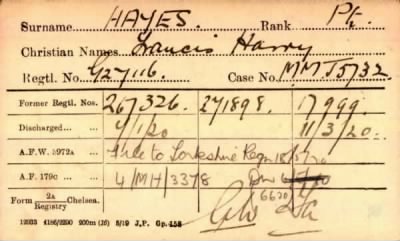 Surname HAYES. Rank Pte.
Christian Names Francis Harry
Regtl. No. G27116. Case No. MMJ5732
Former Regtl. Nos. 267326. 271898. 17999.
Discharged 4/1/20 11/3/20.
A.F.W. 3972A File to Yorkshire Regn 18/5/20
A.F. 179c 4/MH/3378
Form 2A Registry Chelsea. 6620
12333 4186/2290 200m (16) 8/19 J.P. Gp. 158